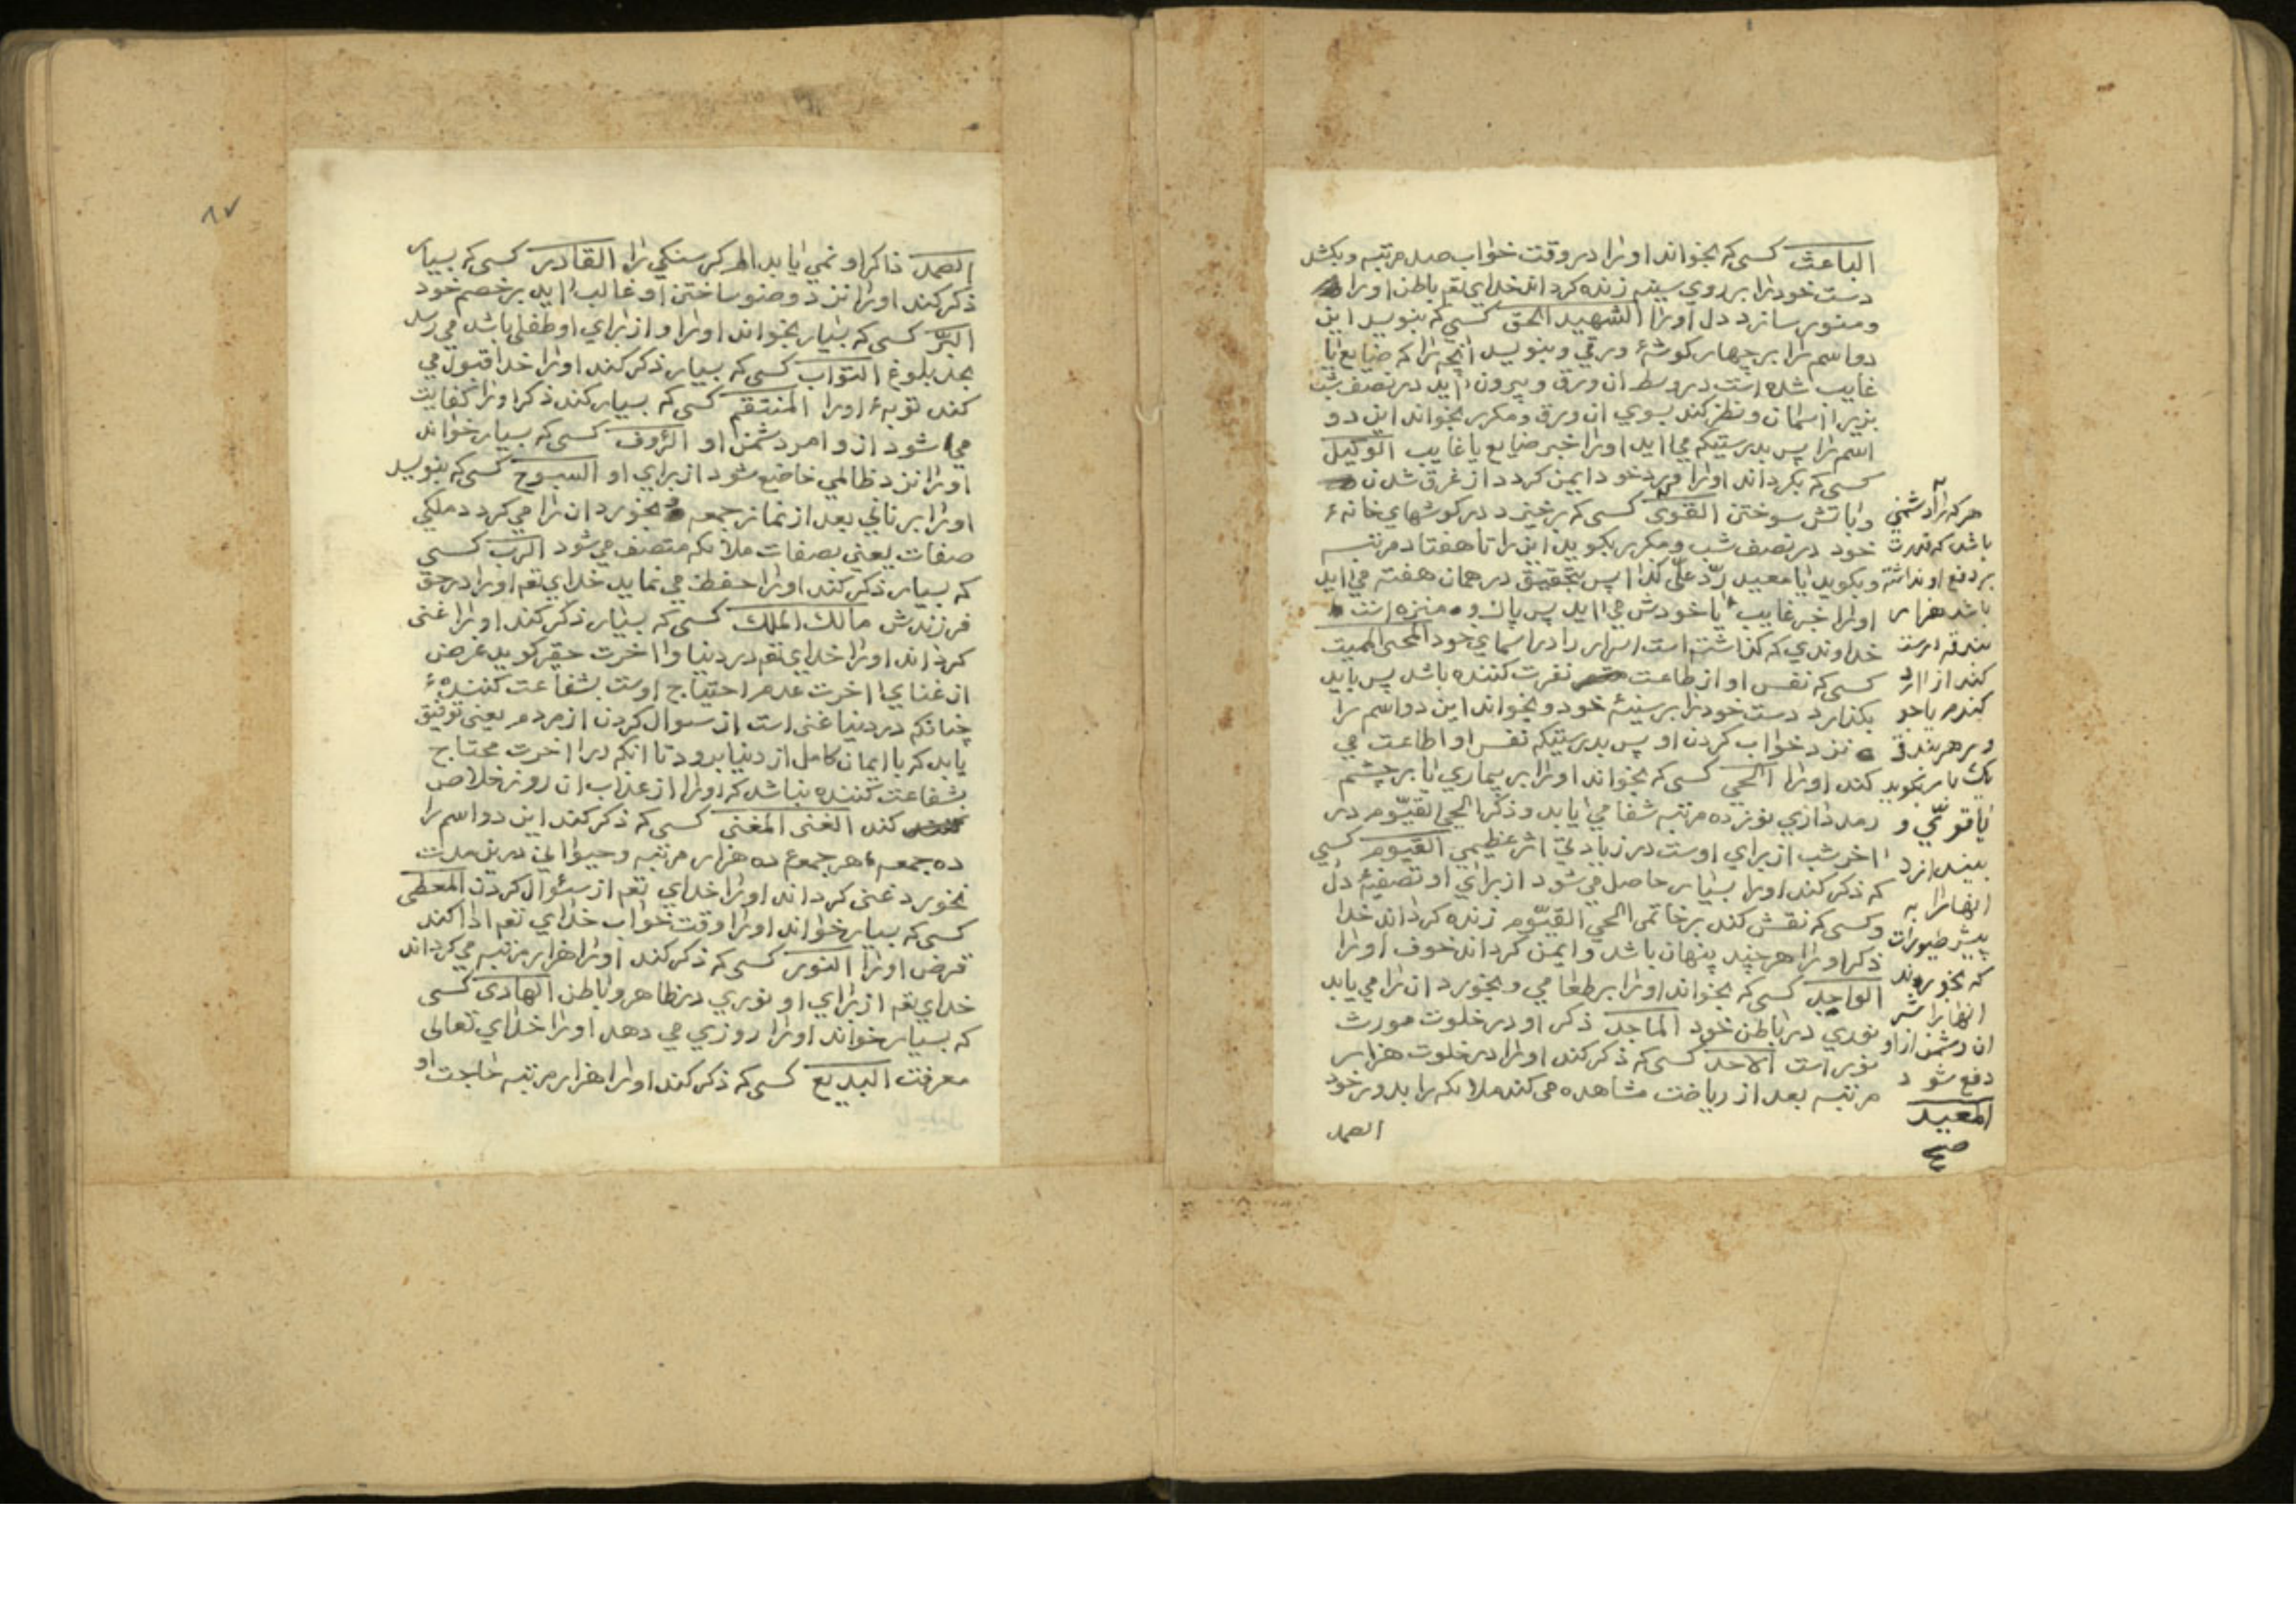 الباعث کسی که بخواند اورا در وقت خواب صد مرتبه و بکشد
دست خود را بر روی سینه زنده کرداند خدای تعم باطن اورا
و منور سازد دل اورا الشهید الحق کسی که بنویسد این
دو اسم را بر چهار کوشهٔ ورقی و بنویسد انچه را که ضایع یا
غایب شده است در وسط ان ورق و بیرون اید در نصف شب
بزیر اسمان و نظر کند بسوی ان ورق و مکرر بخواند این دو
اسم را پس بدرستیکه می اید اورا خبر ضایع یا غایب الوکیل
کسی که بکرداند اورا ورد خود ایمن کردد از غرق شدن
و باتش سوختن القوی کسی که برخیزد در کوشهای خانهٔ
خود در نصف شب و مکرر بکوید این را تا هفتاد مرتبه
و بکوید یا معید ردّ علیّ کذا پس بتحقیق در همان هفته می اید
اورا خبر غایب یا خودش می اید پس پاک و منزه است
خداوندی که کذاشته است اسرار را در اسمای خود المحیی الممیت
کسی که نفس او از طاعت نفرت کننده باشد پس باید
بکذارد دست خود را بر سینهٔ خود و بخواند این دو اسم را
نزد خواب کردن او پس بدرستیکه نفس او اطاعت می
کند اورا الحی کسی که بخواند اورا بر بیماری یا بر چشم
رمد داری نوزده مرتبه شفا می یابد و ذکر الحی القیّوم در
اخر شب از برای اوست در زیادتی اثر عظیمی القیوم کسی
که ذکر کند اورا بسیار حاصل می شود از برای او تصفیهٔ دل
و کسی که نقش کند بر خاتمی الحی القیّوم زنده کرداند خدا
ذکر اورا هر چند پنهان باشد و ایمن کرداند خوف اورا
الواجد کسی که بخواند اورا بر طعامی و بخورد ان را می یابد
نوری در باطن خود الماجد ذکر او در خلوت مورث
نور است الاحد کسی که ذکر کند اورا در خلوت هزار
مرتبه بعد از ریاضت مشاهده می کند ملائکه را بدور خود
الصمد
هر که را دشمنی
باشد که قدرت
بر دفع او نداشته
باشد هزار
بندقه درست
کند از ارد
کندم یا جو
و بر هر بندقی
یک بار بکوید
یا قوئی و
بیندازد
انها را به
پیش طیورات
که بخورند
انها را شر
ان دشمن از او
دفع شود
المعید
صح
۸۷
الصمد ذاکر او نمی یابد الم کرسنکی را القادر کسی که بسیار
ذکر کند اورا نزد وضو ساختن او غالب اید بر خصم خود
البرّ کسی که بسیار بخواند اورا و از برای او طفلی باشد می رسد
بحد بلوغ التواب کسی که بسیار ذکر کند اورا خدا قبول می
کند توبهٔ اورا المنتقم کسی که بسیار کند ذکر اورا کفایت
می شود از و امر دشمن او الرؤف کسی که بسیار خواند
اورا نزد ظالمی خاضع شود از برای او السبوح کسی که بنویسد
اورا بر نانی بعد از نماز جمعه و بخورد ان را می کردد ملکی
صفات یعنی بصفات ملائکه متصف می شود الرب کسی
که بسیار ذکر کند اورا حفظ می نماید خدای تعم اورا در حق
فرزندش مالک الملک کسی که بسیار ذکر کند اورا غنی
کرداند اورا خدای تعم در دنیا و اخرت حقیر کوید غرض
از غنای اخرت عدم احتیاج اوست بشفاعت کنندهٔ
چنانکه در دنیا غنی است از سوال کردن از مردم یعنی توفیق
یابد که با ایمان کامل از دنیا برود تا انکه در اخرت محتاج
بشفاعت کننده نباشد که اورا از عذاب ان روز خلاص
کند الغنی المغنی کسی که ذکر کند این دو اسم را
ده جمعه هر جمعه ده هزار مرتبه و حیوانی درین مدت
نخورد غنی کرداند اورا خدای تعم از سئوال کردن المعطی
کسی که بسیار خواند اورا وقت خواب خدای تعم ادا کند
قرض اورا النور کسی که ذکر کند اورا هزار مرتبه می کرداند
خدای تعم از برای او نوری در ظاهر و باطن الهادی کسی
که بسیار خواند اورا روزی می دهد اورا خدای تعالی
معرفت البدیع کسی که ذکر کند اورا هزار مرتبه حاجت او